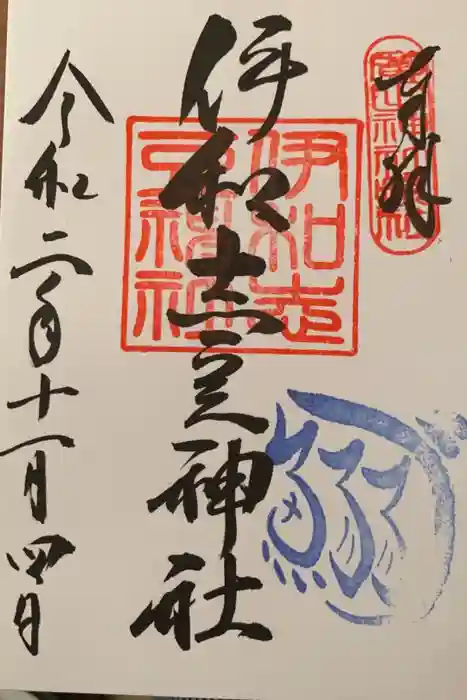 奉拝
伊和志豆神社
伊和志
豆神社
令和二年十一月四日